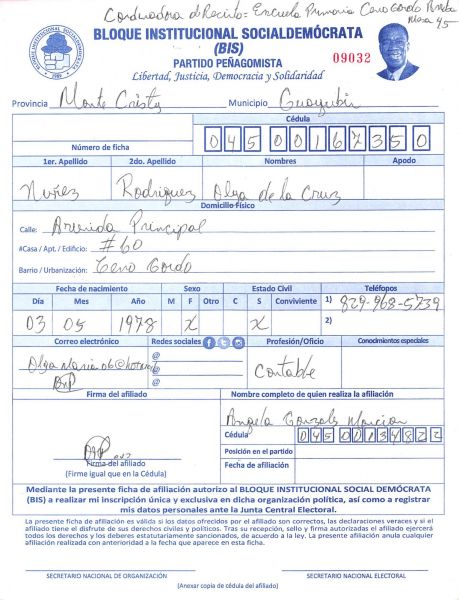 Coordinadora de Recinto: Escuela Primaria Cerro Gordo
Mesa 45
BLOQUE INSTITUCIONAL SOCIALDEMÓCRATA
(BIS)
PARTIDO PEÑAGOMISTA
09032
Libertad, Justicia, Democracia y Solidaridad
Provincia Monte Cristy Municipio Guayubin
Cédula
Número de ficha 04500167350
1er. Apellido 2do. Apellido Nombres Apodo
Nuñez Rodriguez Olga de la Cruz
Domicilio Físico
Calle: Avenida Principal
#Casa / Apt. / Edificio: #60
Barrio / Urbanización: Cerro Gordo
Fecha de nacimiento Sexo Estado Civil Teléfonos
Día Mes Año M F Otro C S Conviviente 1) 829-968-5739
03 05 1978 X X 2)
Correo electrónico Redes sociales Profesión/Oficio Conocimientos especiales
@
@
@
Contable
Firma del afiliado Nombre completo de quien realiza la afiliación
Angela Gonzalez
Cédula 04500134822
Posición en el partido
Fecha de afiliación
Firma del afiliado
(Firme igual que en la Cédula)
Mediante la presente ficha de afiliación autorizo al BLOQUE INSTITUCIONAL SOCIAL DEMÓCRATA
(BIS) a realizar mi inscripción única y exclusiva en dicha organización política, así como a registrar
mis datos personales ante la Junta Central Electoral.
La presente ficha de afiliación es válida si los datos ofrecidos por el afiliado son correctos, las declaraciones veraces y si el
afiliado tiene el disfrute de sus derechos civiles y políticos. Tras su recepción, sello y firma autorizadas el afiliado ejercerá
todos los derechos y los deberes estatutariamente sancionados, de acuerdo a la ley. La presente afiliación anula cualquier
afiliación realizada con anterioridad a la fecha que aparece en esta ficha.
SECRETARIO NACIONAL DE ORGANIZACIÓN SECRETARIO NACIONAL ELECTORAL
(Anexar copia de cédula del afiliado)